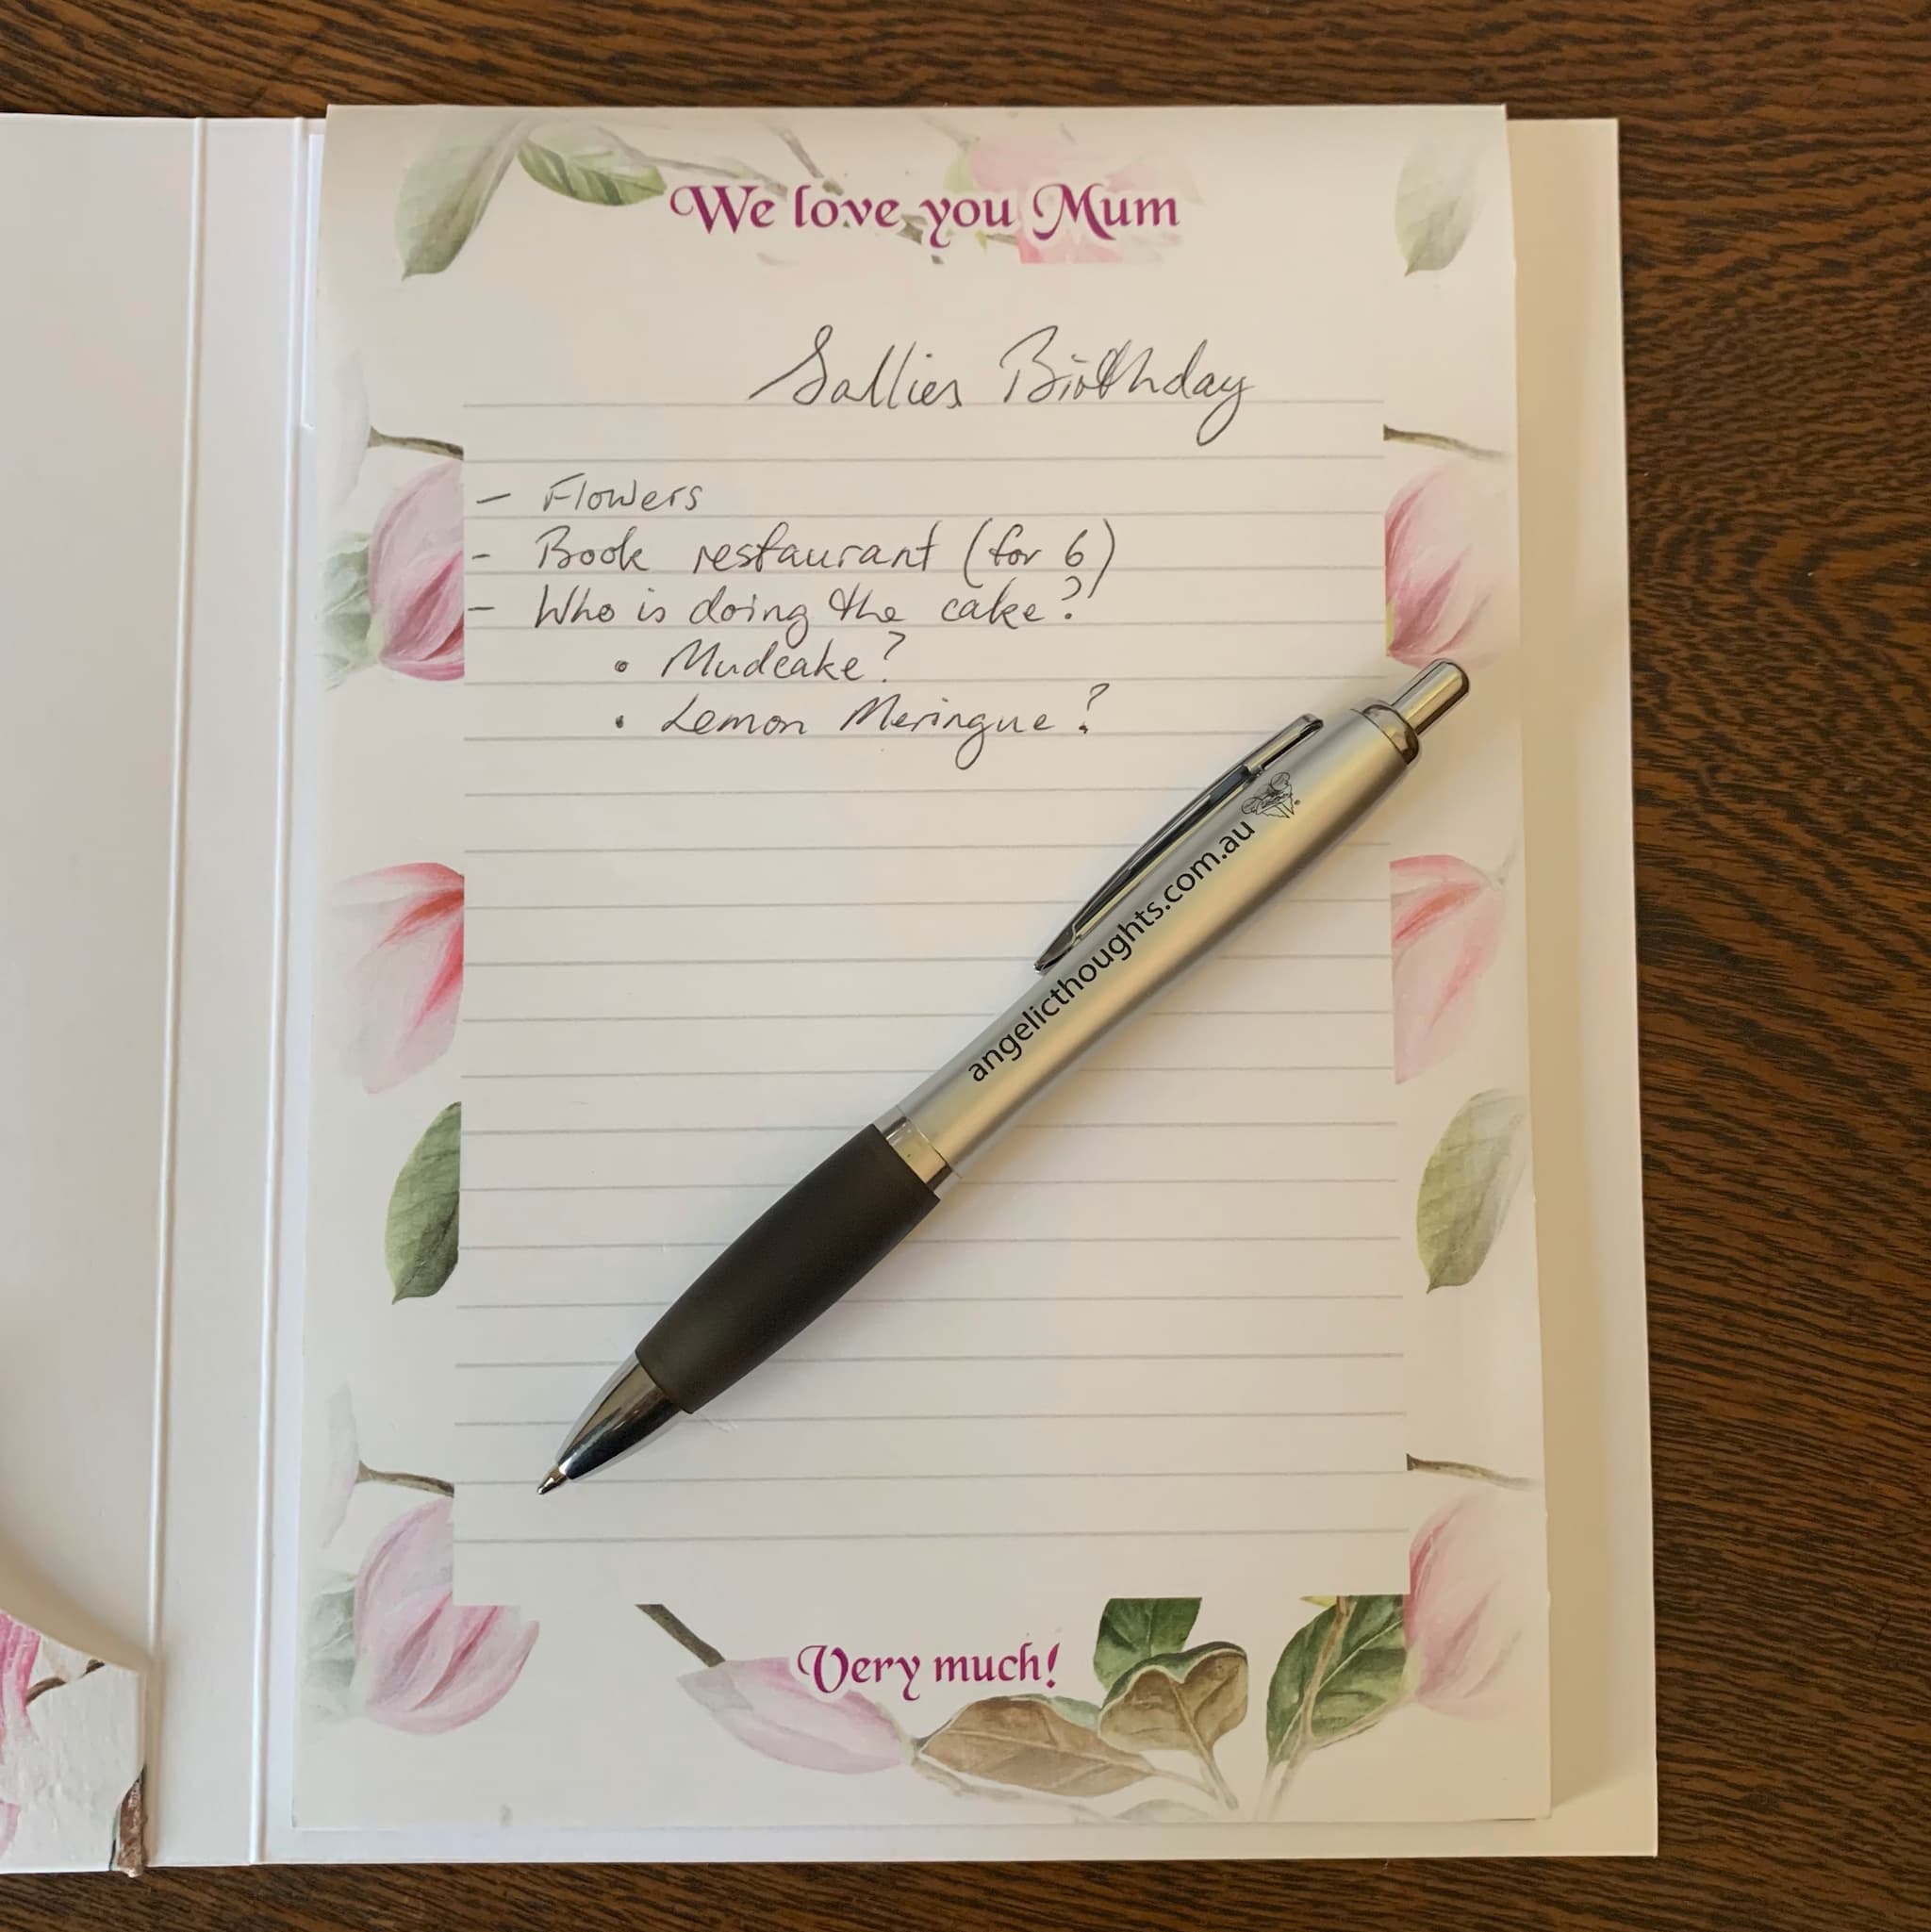 We love you Mum
Sallies Birthday
- Flowers
- Book restaurant (for 6)
- Who is doing the cake?
• Mudcake?
• Lemon Meringue?
angelicthoughts.com.au
Very much!